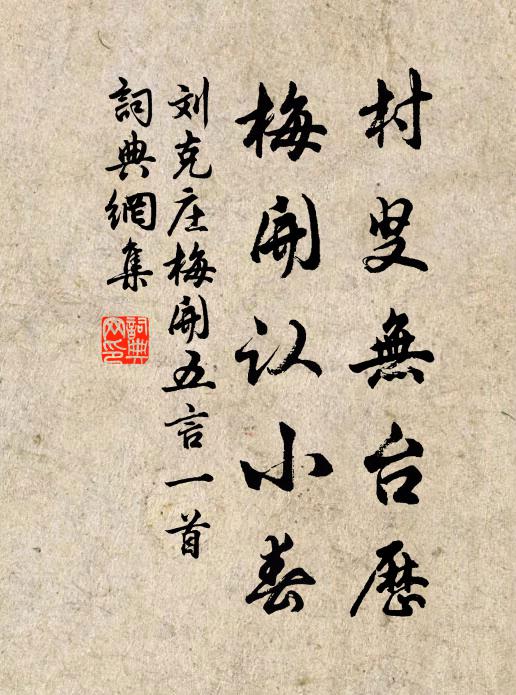 村叟無台歷
梅開认小春
刘克庄梅開五言一首
詞典網集
詞典網印